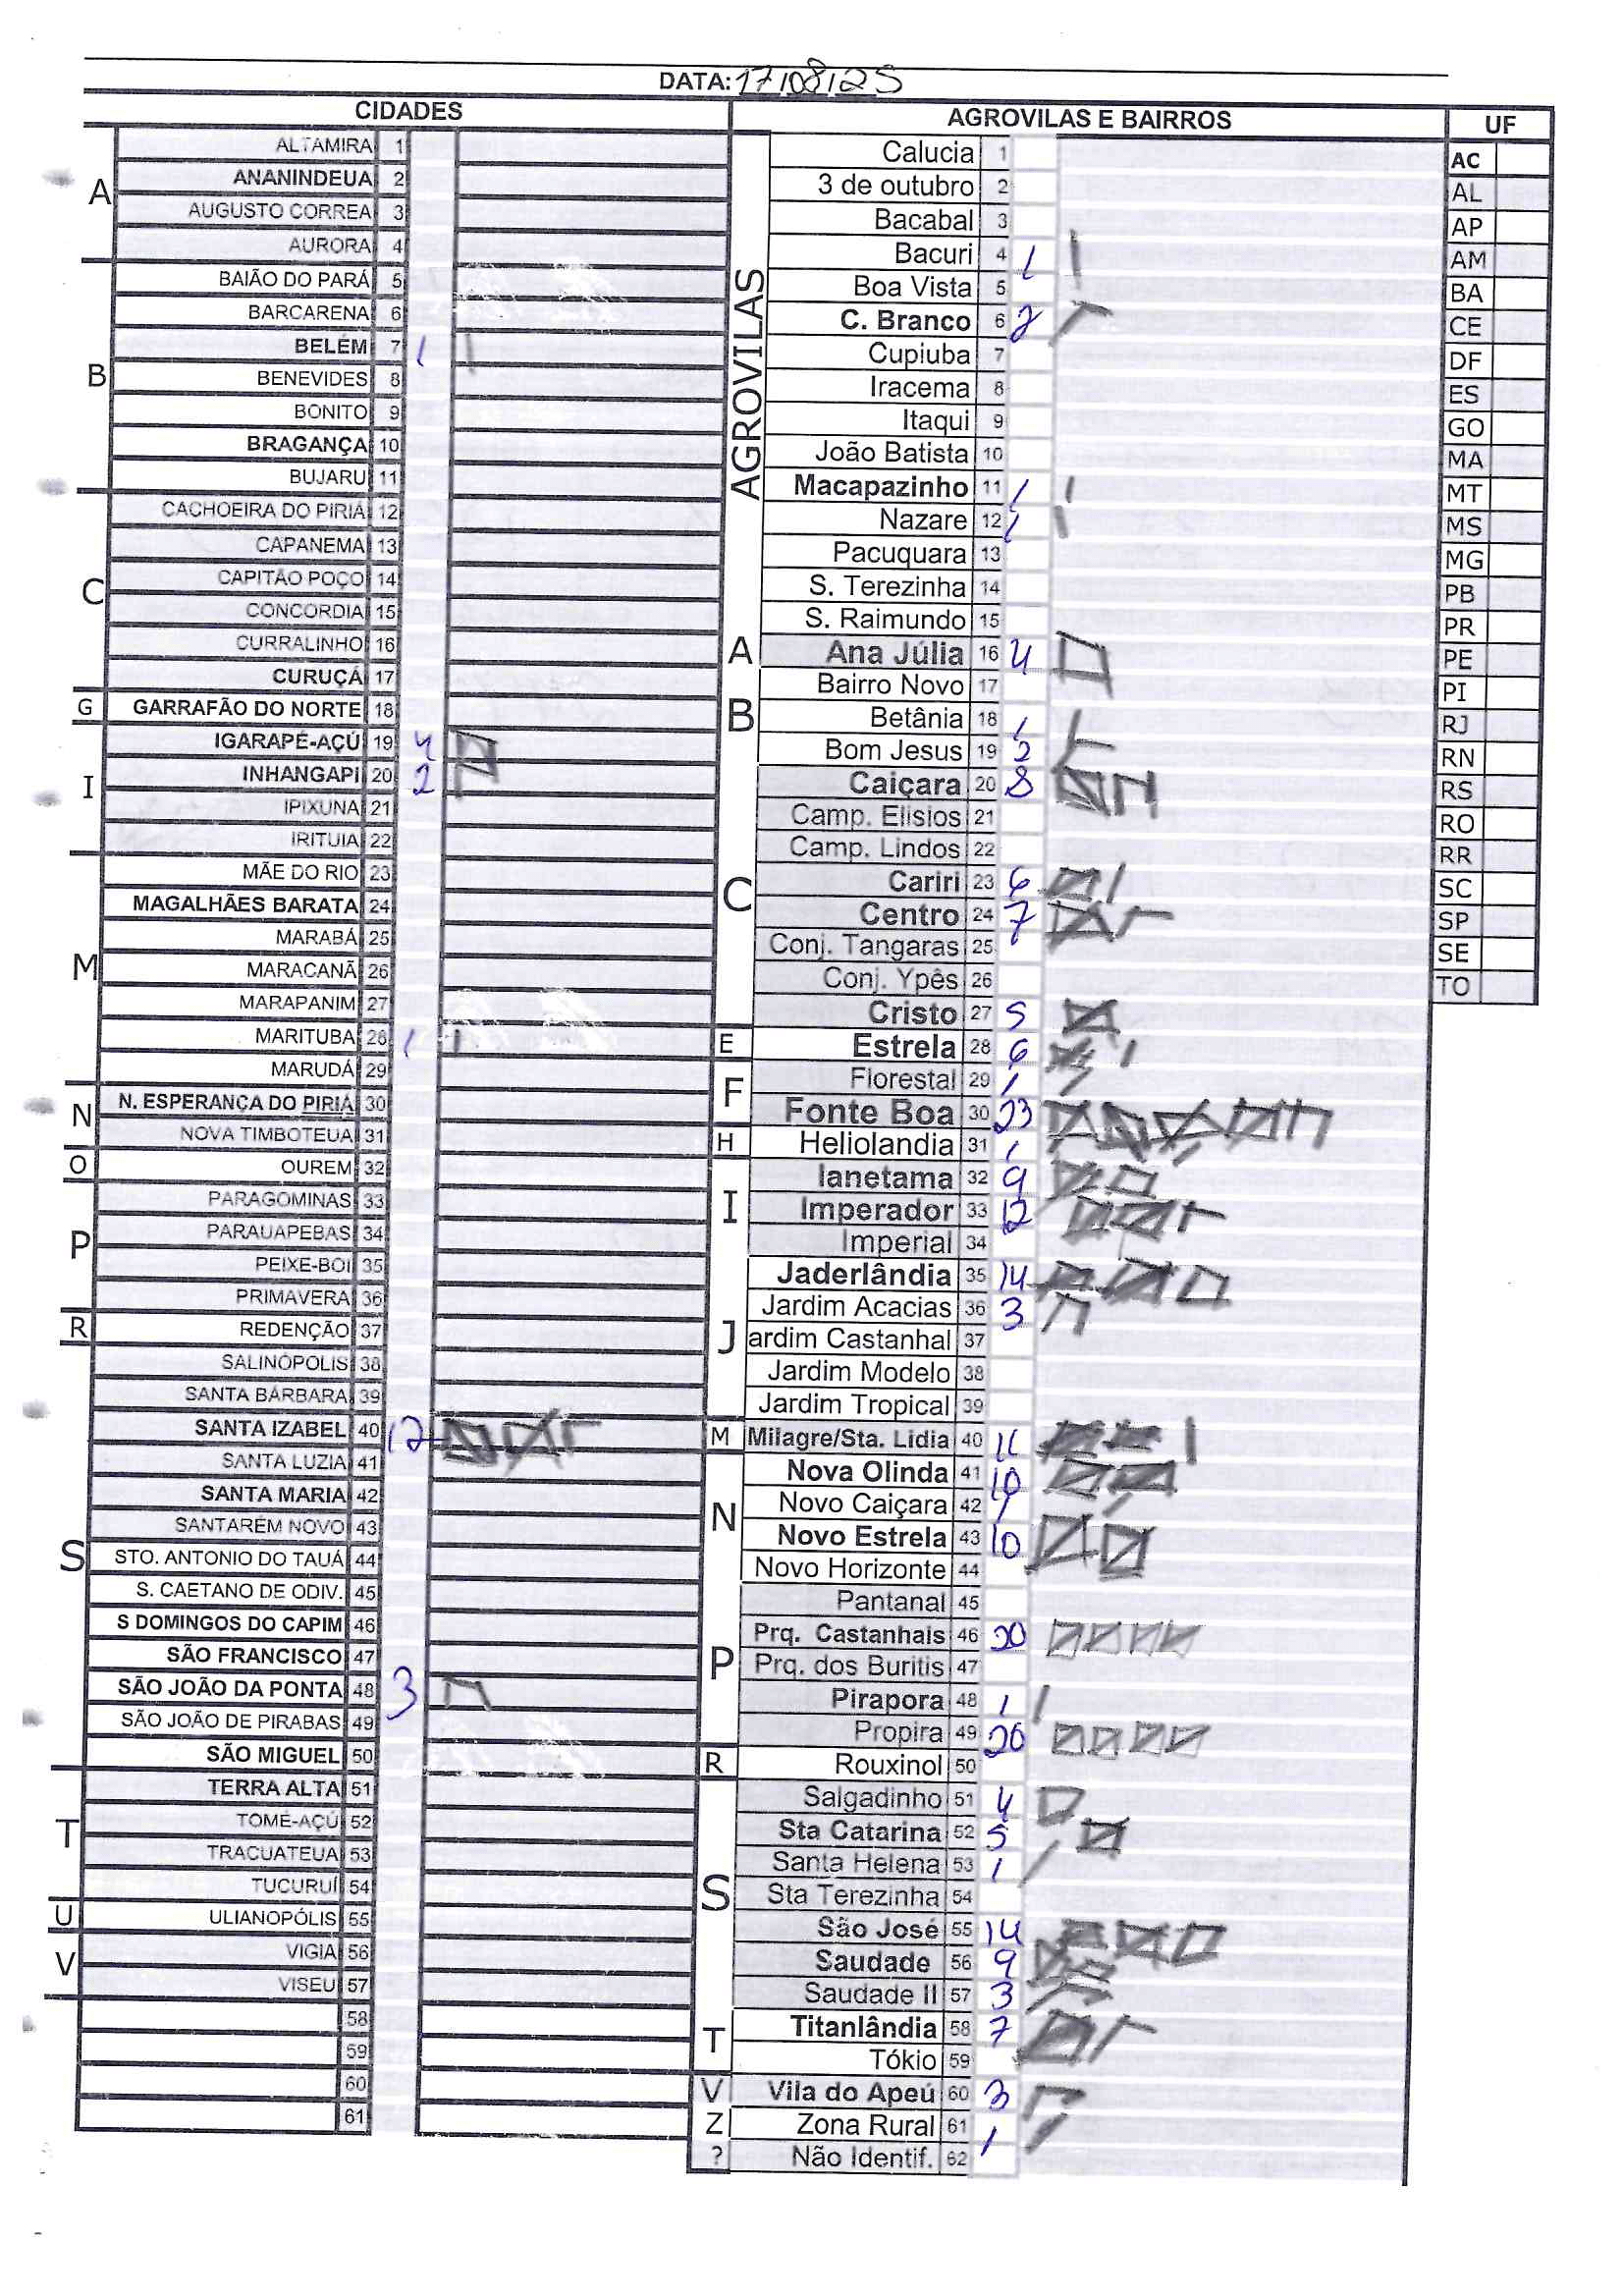 DATA: 17/08/25
CIDADES
A
ALTAMIRA 1
ANANINDEUA 2
AUGUSTO CORREA 3
AURORA 4
B
BAIÃO DO PARÁ 5
BARCARENA 6
BELÉM 7 1
BENEVIDES 8
BONITO 9
BRAGANÇA 10
BUJARU 11
C
CACHOEIRA DO PIRIÁ 12
CAPANEMA 13
CAPITÃO POÇO 14
CONCORDIA 15
CURRALINHO 16
CURUÇÁ 17
G
GARRAFÃO DO NORTE 18
I
IGARAPÉ-AÇÚ 19 4
INHANGAPI 20 2
IPIXUNA 21
IRITUIA 22
M
MÃE DO RIO 23
MAGALHÃES BARATA 24
MARABÁ 25
MARACANÃ 26
MARAPANIM 27
MARITUBA 28 1
MARUDÁ 29
N
N. ESPERANÇA DO PIRIÁ 30
NOVA TIMBOTEUA 31
O
OUREM 32
P
PARAGOMINAS 33
PARAUAPEBAS 34
PEIXE-BOI 35
PRIMAVERA 36
R
REDENÇÃO 37
S
SALINÓPOLIS 38
SANTA BÁRBARA 39
SANTA IZABEL 40 12
SANTA LUZIA 41
SANTA MARIA 42
SANTARÉM NOVO 43
STO. ANTONIO DO TAUÁ 44
S. CAETANO DE ODIV. 45
S DOMINGOS DO CAPIM 46
SÃO FRANCISCO 47
SÃO JOÃO DA PONTA 48 3
SÃO JOÃO DE PIRABAS 49
SÃO MIGUEL 50
T
TERRA ALTA 51
TOMÉ-AÇÚ 52
TRACUATEUA 53
TUCURUÍ 54
U
ULIANOPÓLIS 55
V
VIGIA 56
VISEU 57
58
59
60
61
AGROVILAS E BAIRROS
AGROVILAS
Calucia 1
3 de outubro 2
Bacabal 3
Bacuri 4 1
Boa Vista 5
C. Branco 6 2
Cupiuba 7
Iracema 8
Itaqui 9
João Batista 10
Macapazinho 11 1
Nazare 12 1
Pacuquara 13
S. Terezinha 14
S. Raimundo 15
A
Ana Júlia 16 4
Bairro Novo 17
B
Betânia 18 1
Bom Jesus 19 2
C
Caiçara 20 8
Camp. Elisios 21
Camp. Lindos 22
Cariri 23 6
Centro 24 7
Conj. Tangaras 25
Conj. Ypês 26
Cristo 27 5
E
Estrela 28 6
F
Florestal 29 1
Fonte Boa 30 23
H
Heliolandia 31 1
I
Ianetama 32 9
Imperador 33 12
Imperial 34
J
Jaderlândia 35 14
Jardim Acacias 36 3
ardim Castanhal 37
Jardim Modelo 38
Jardim Tropical 39
M
Milagre/Sta. Lidia 40 11
N
Nova Olinda 41 10
Novo Caiçara 42 1
Novo Estrela 43 10
Novo Horizonte 44
P
Pantanal 45
Prq. Castanhais 46 20
Prq. dos Buritis 47
Pirapora 48 1
Propira 49 20
R
Rouxinol 50
S
Salgadinho 51 4
Sta Catarina 52 5
Santa Helena 53 1
Sta Terezinha 54
São José 55 14
Saudade 56 9
Saudade II 57 3
T
Titanlândia 58 7
Tókio 59
V
Vila do Apeú 60 3
Z
Zona Rural 61 1
?
Não Identif. 62
UF
AC
AL
AP
AM
BA
CE
DF
ES
GO
MA
MT
MS
MG
PB
PR
PE
PI
RJ
RN
RS
RO
RR
SC
SP
SE
TO